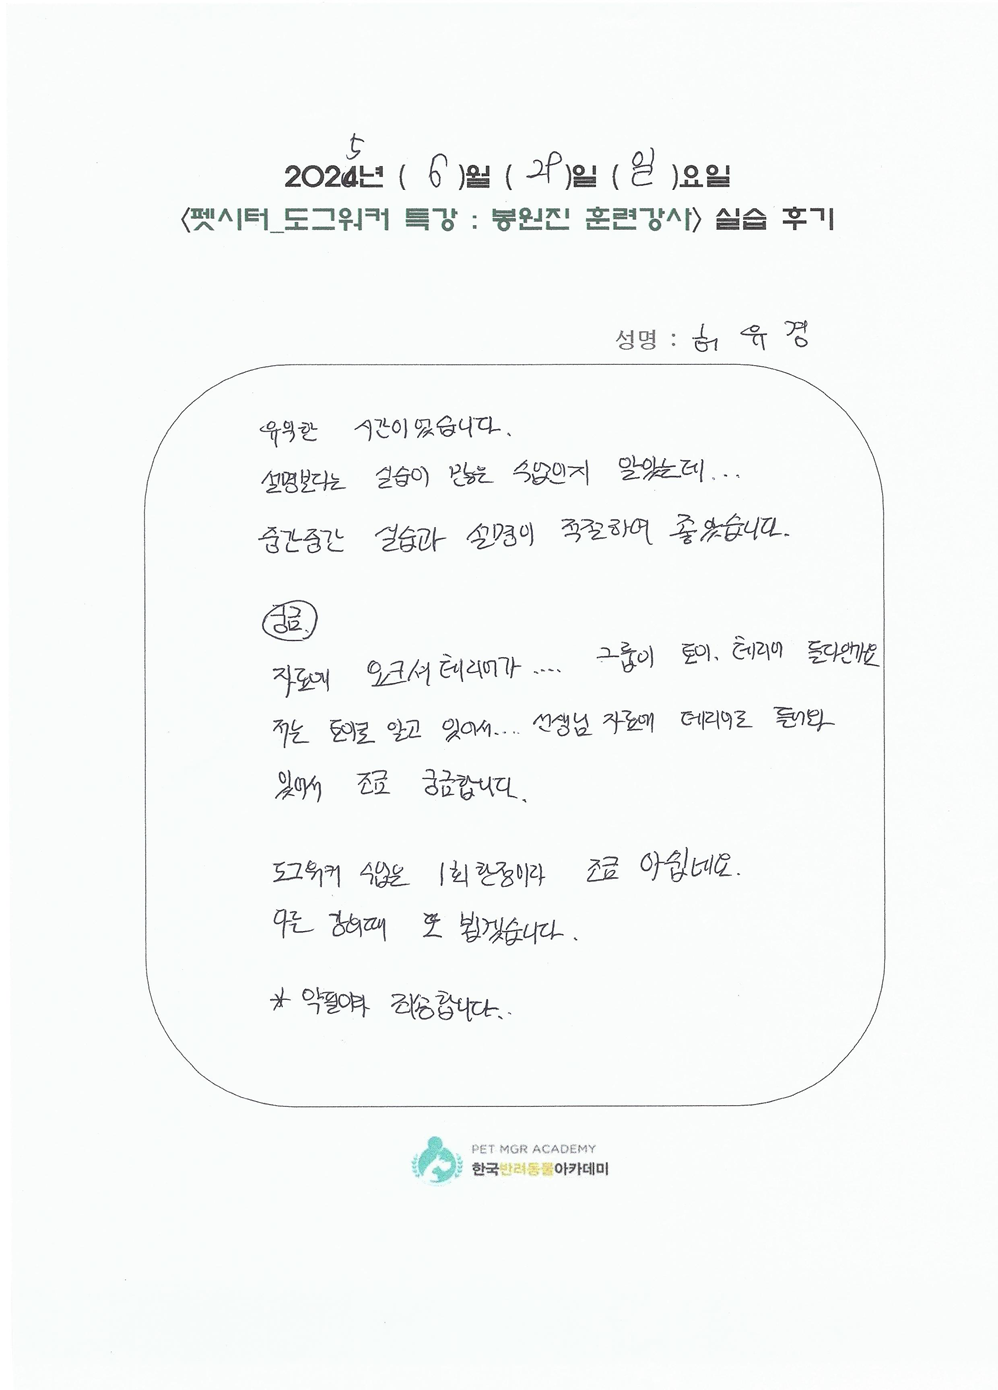 2025년 ( 6 )월 ( 29 )일 ( 일 )요일
<펫시터_도그워커 특강 : 봉원진 훈련강사> 실습 후기
성명 : 허 유 경
유익한 시간이었습니다.
설명보다는 실습이 많은 수업인지 알았는데...
중간중간 실습과 설명이 적절하여 좋았습니다.
궁금.
자료에 요크셔테리어가 .... 그룹이 토이, 테리어 둘다인가요
저는 토이로 알고 있어서.... 선생님 자료에 테리어로 들어와
있어서 조금 궁금합니다.
도그워커 수업은 1회 한정이라 조금 아쉽네요.
다른 강의때 또 뵙겠습니다.
* 악필이라 죄송합니다..
PET MGR ACADEMY
한국반려동물아카데미